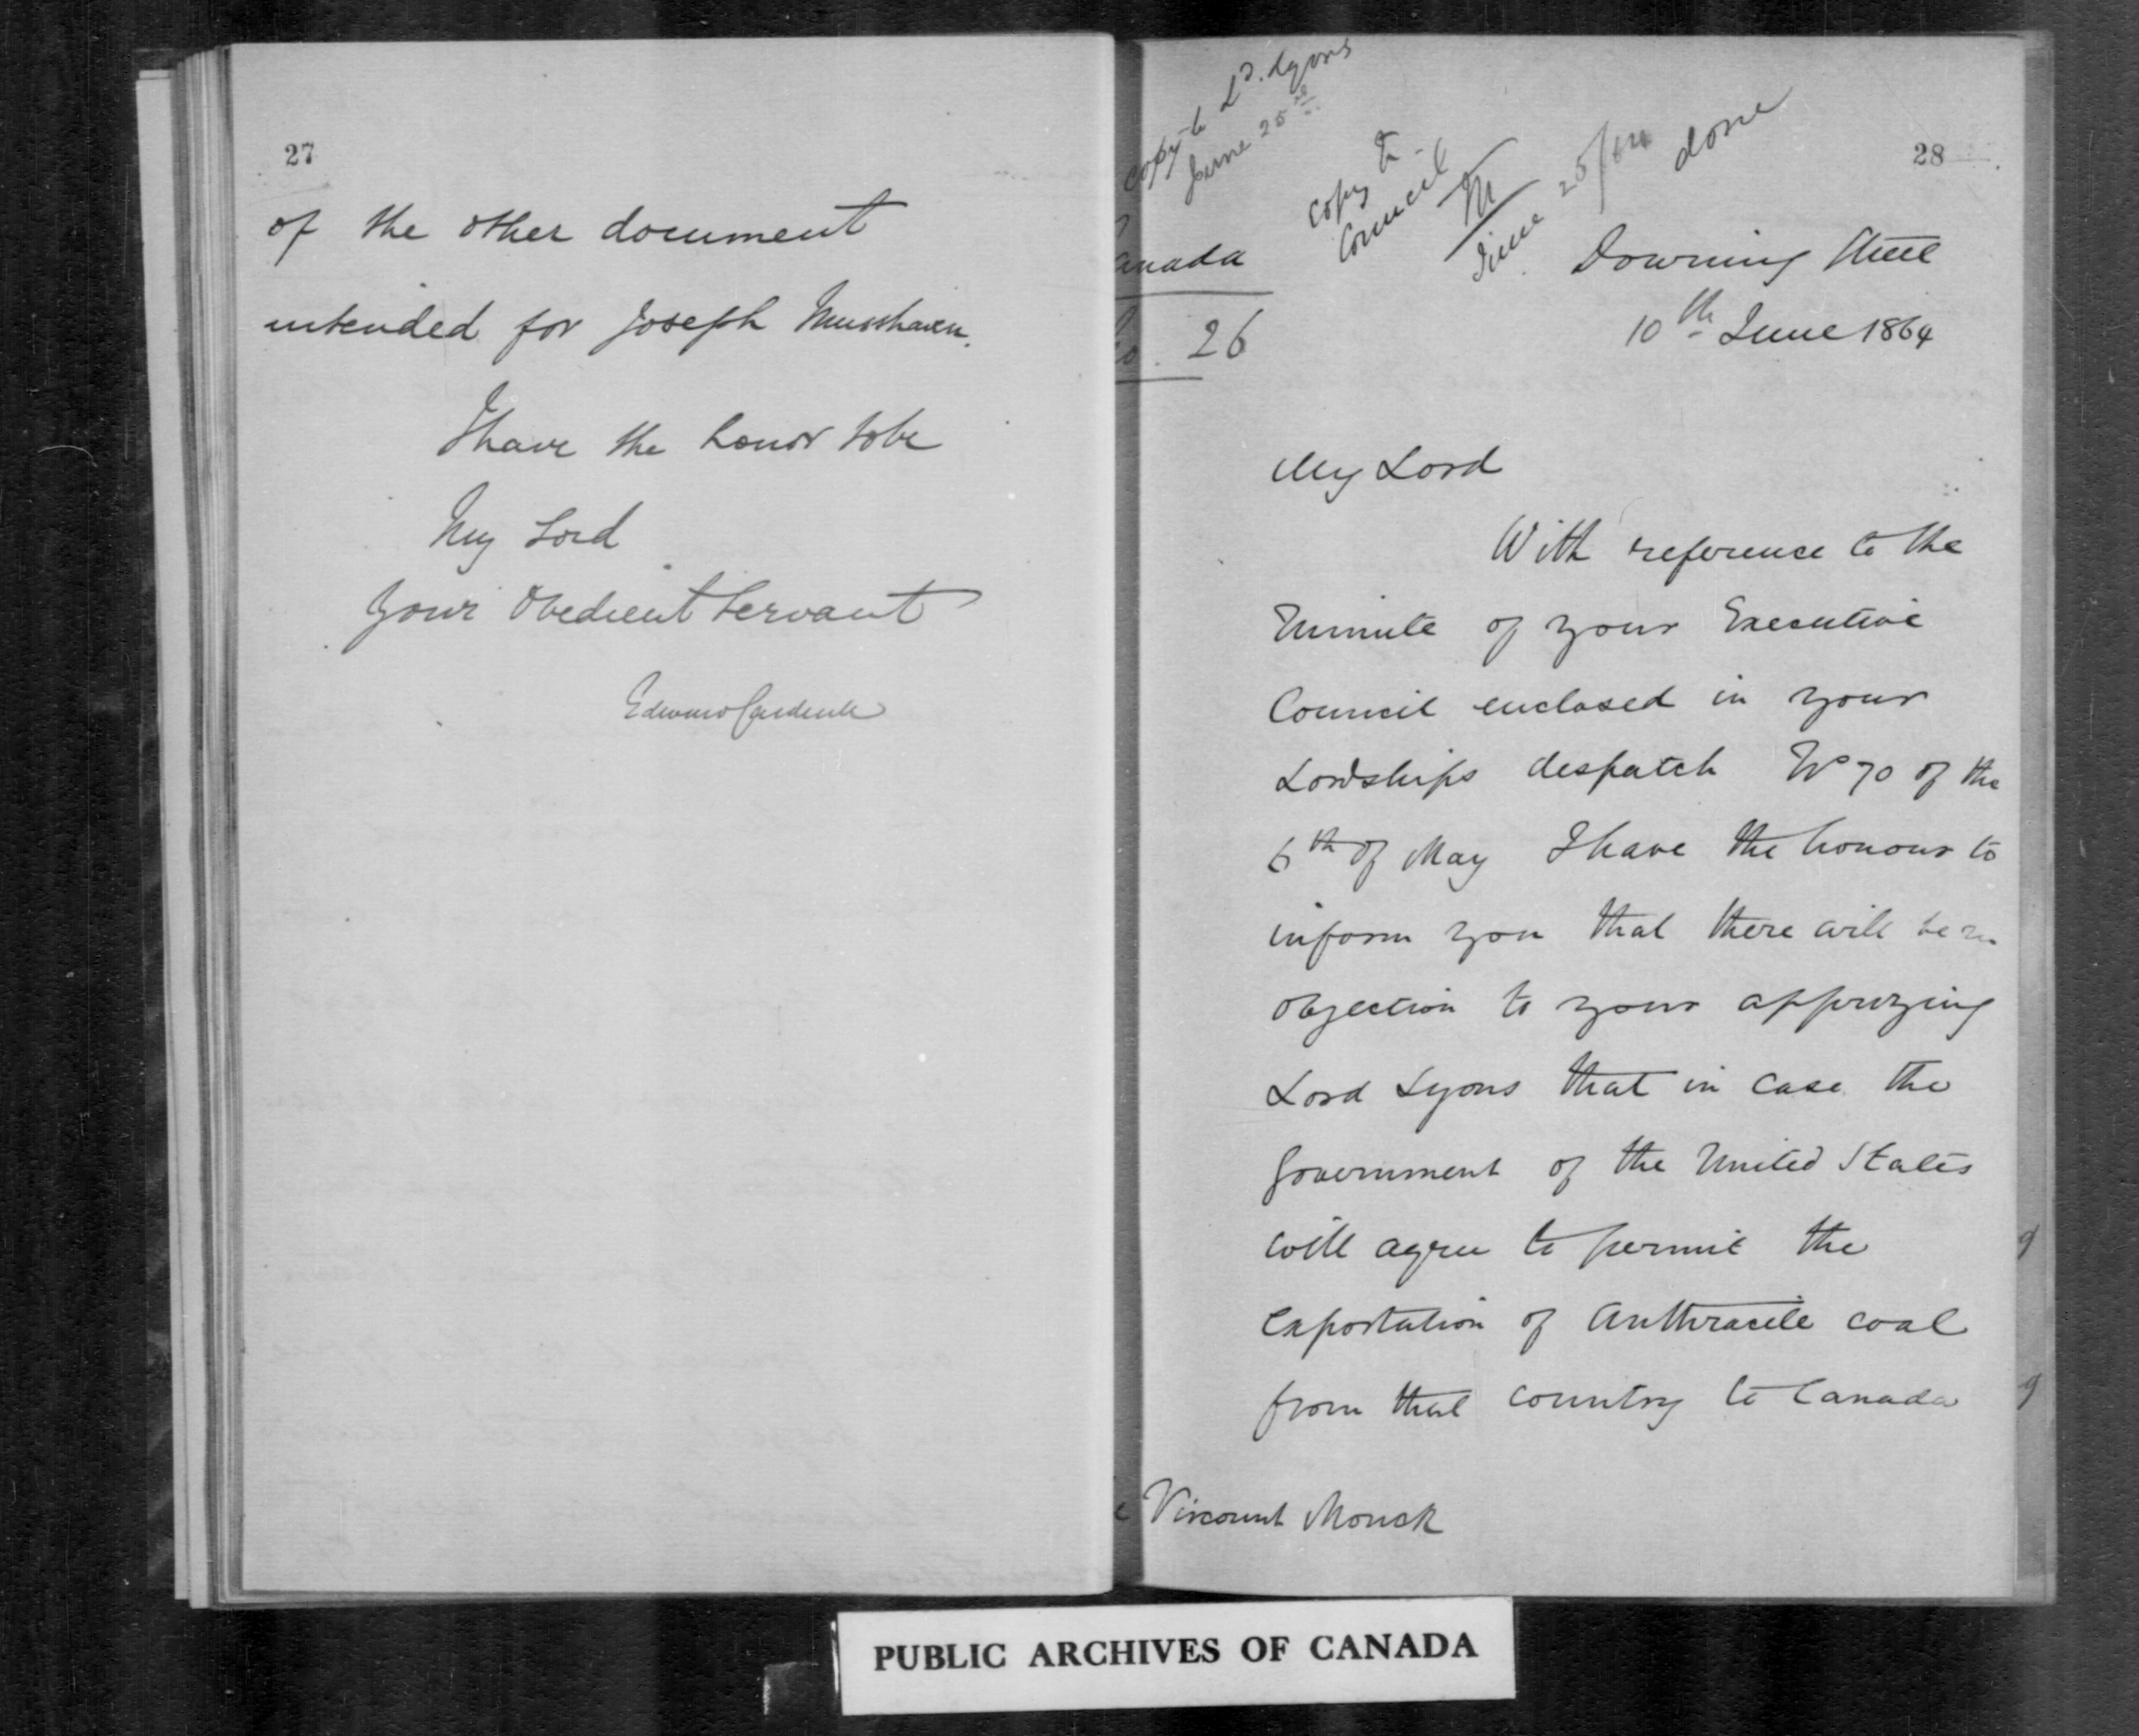 27
of the other document
intended for Joseph
I have the honor to be
My Lord
Your Obedient Servant
Edward Cardwell
Copy to Ld. Lyons
June 25
Copy to
Council
M
June 25/64
done
28
anada
o. 26
Downing Street
10th June 1864
My Lord
With reference to the
Minute of your Executive
Council enclosed in your
Lordships despatch No 70 of the
6th of May I have the honour to
inform you that there will be no
objection to your apprizing
Lord Lyons that in case the
Government of the United States
will agree to permit the
Exportation of Anthracite coal
from that country to Canada
Viscount Monck
PUBLIC ARCHIVES OF CANADA